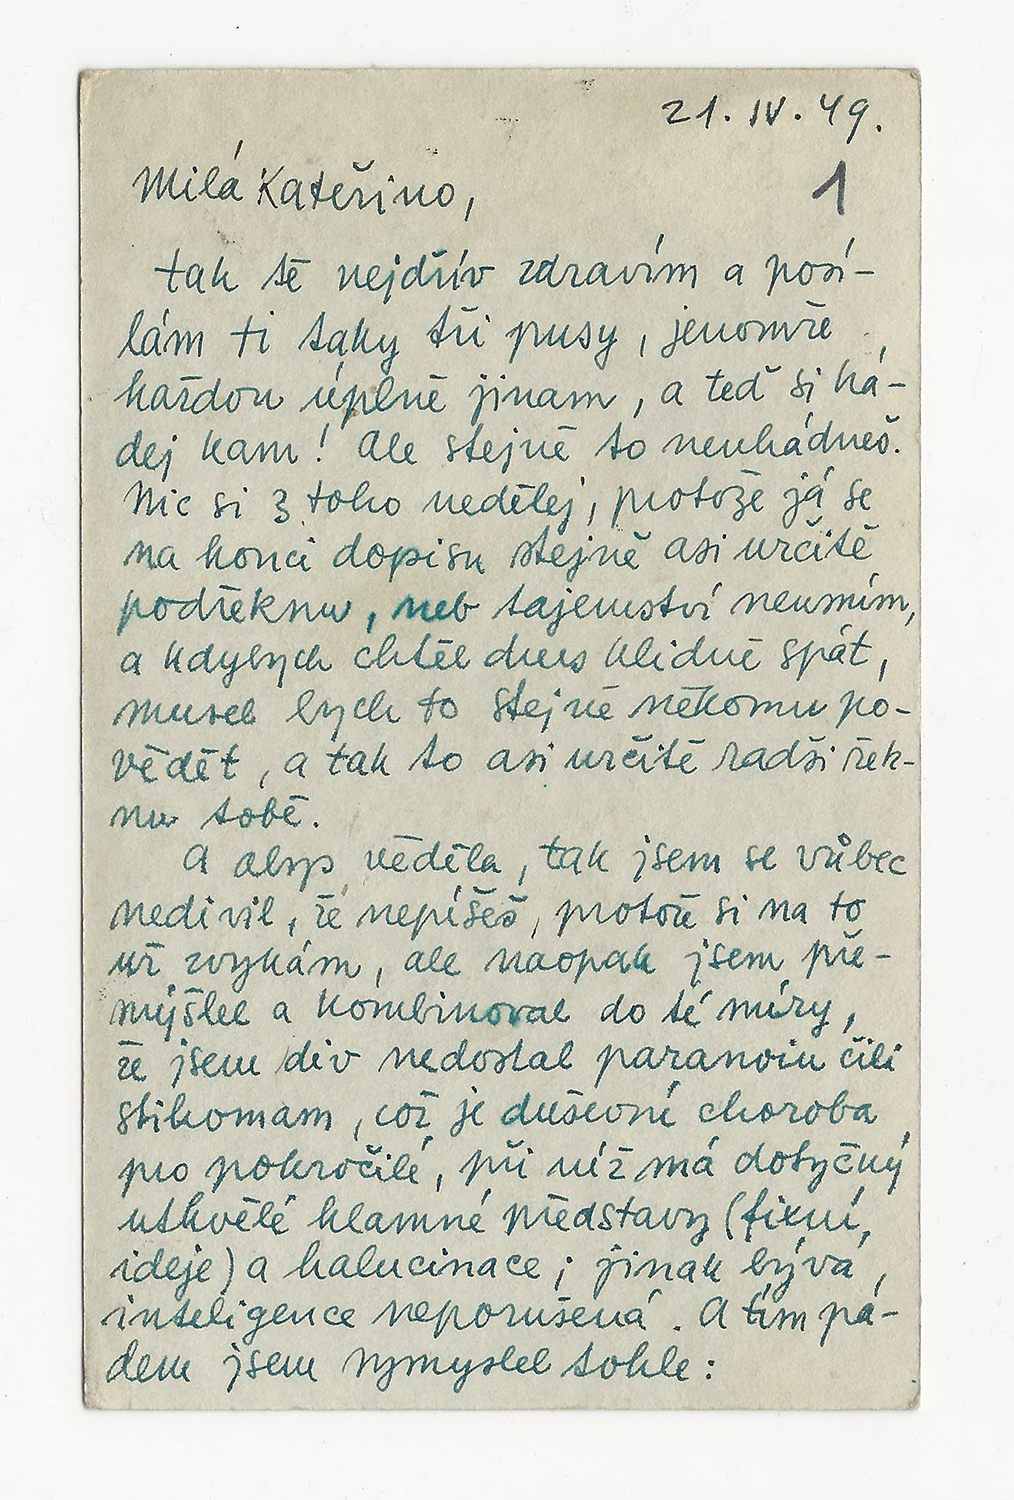 21. IV. 49.
1
Milá Kateřino,
tak tě nejdřív zdravím a posí-
lám ti taky tři pusy, jenomže
každou úplně jinam, a teď si há-
dej kam! Ale stejně to neuhádneš.
Nic si z toho nedělej, protože já se
na konci dopisu stejně asi určitě
podřeknu, neb tajemství neumím,
a kdybych chtěl dnes klidně spát,
musel bych to stejně někomu po-
vědět, a tak to asi určitě radši řek-
nu tobě.
A abys věděla, tak jsem se vůbec
nedivil, že nepíšeš, protože si na to
už zvykám, ale naopak jsem pře-
mýšlel a kombinoval do té míry,
že jsem div nedostal paranoiu čili
stihomam, což je duševní choroba
pro pokročilé, při níž má dotyčný
utkvělé klamné představy (fixní
ideje) a halucinace; jinak bývá
inteligence neporušená. A tím pá-
dem jsem vymyslel tohle: